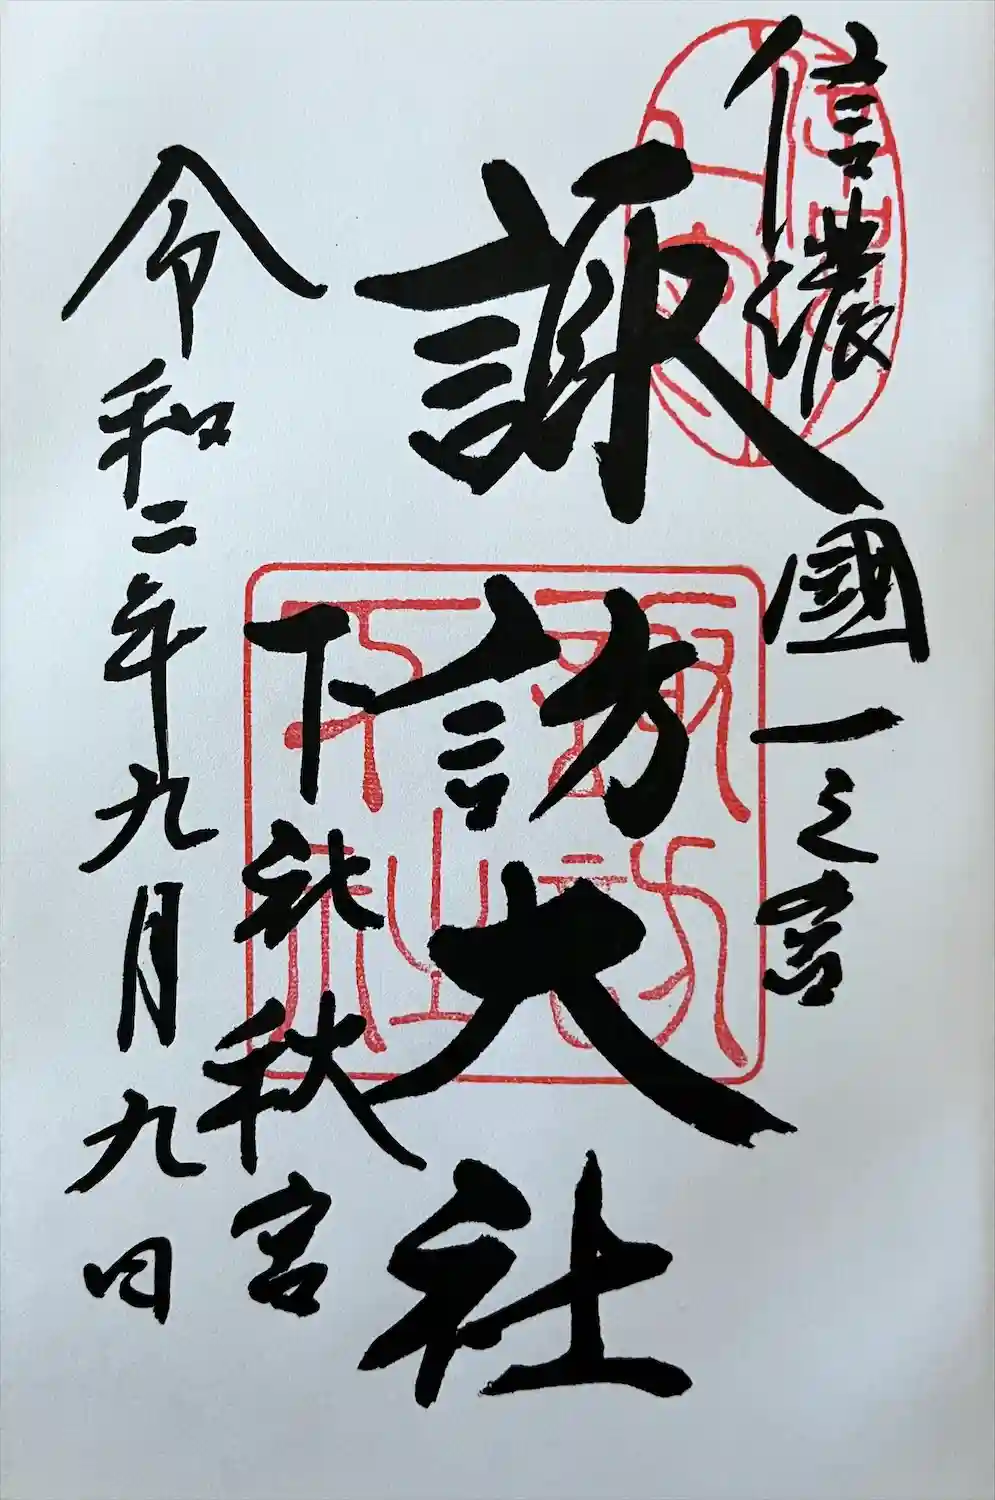 信濃國一之宮
諏訪大社
下社秋宮
令和二年九月九日
諏訪大社